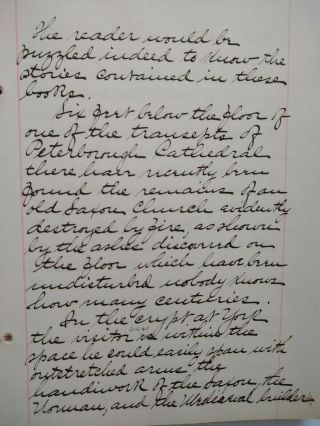 The reader would be
puzzled indeed to know the
stories contained in these
books.
Six feet below the floor of
one of the transepts of
Peterborough Cathedral
there have recently been
found the remains of an
old Saxon Church evidently
destroyed by fire, as shown
by the ashes discovered on
the floor which have been
undisturbed nobody knows
how many centuries.
In the crypt at York
the visitor sees within the
space he could easily span with
outstretched arms the
handiwork of the Saxon, the
Norman, and the Mediaeval builder